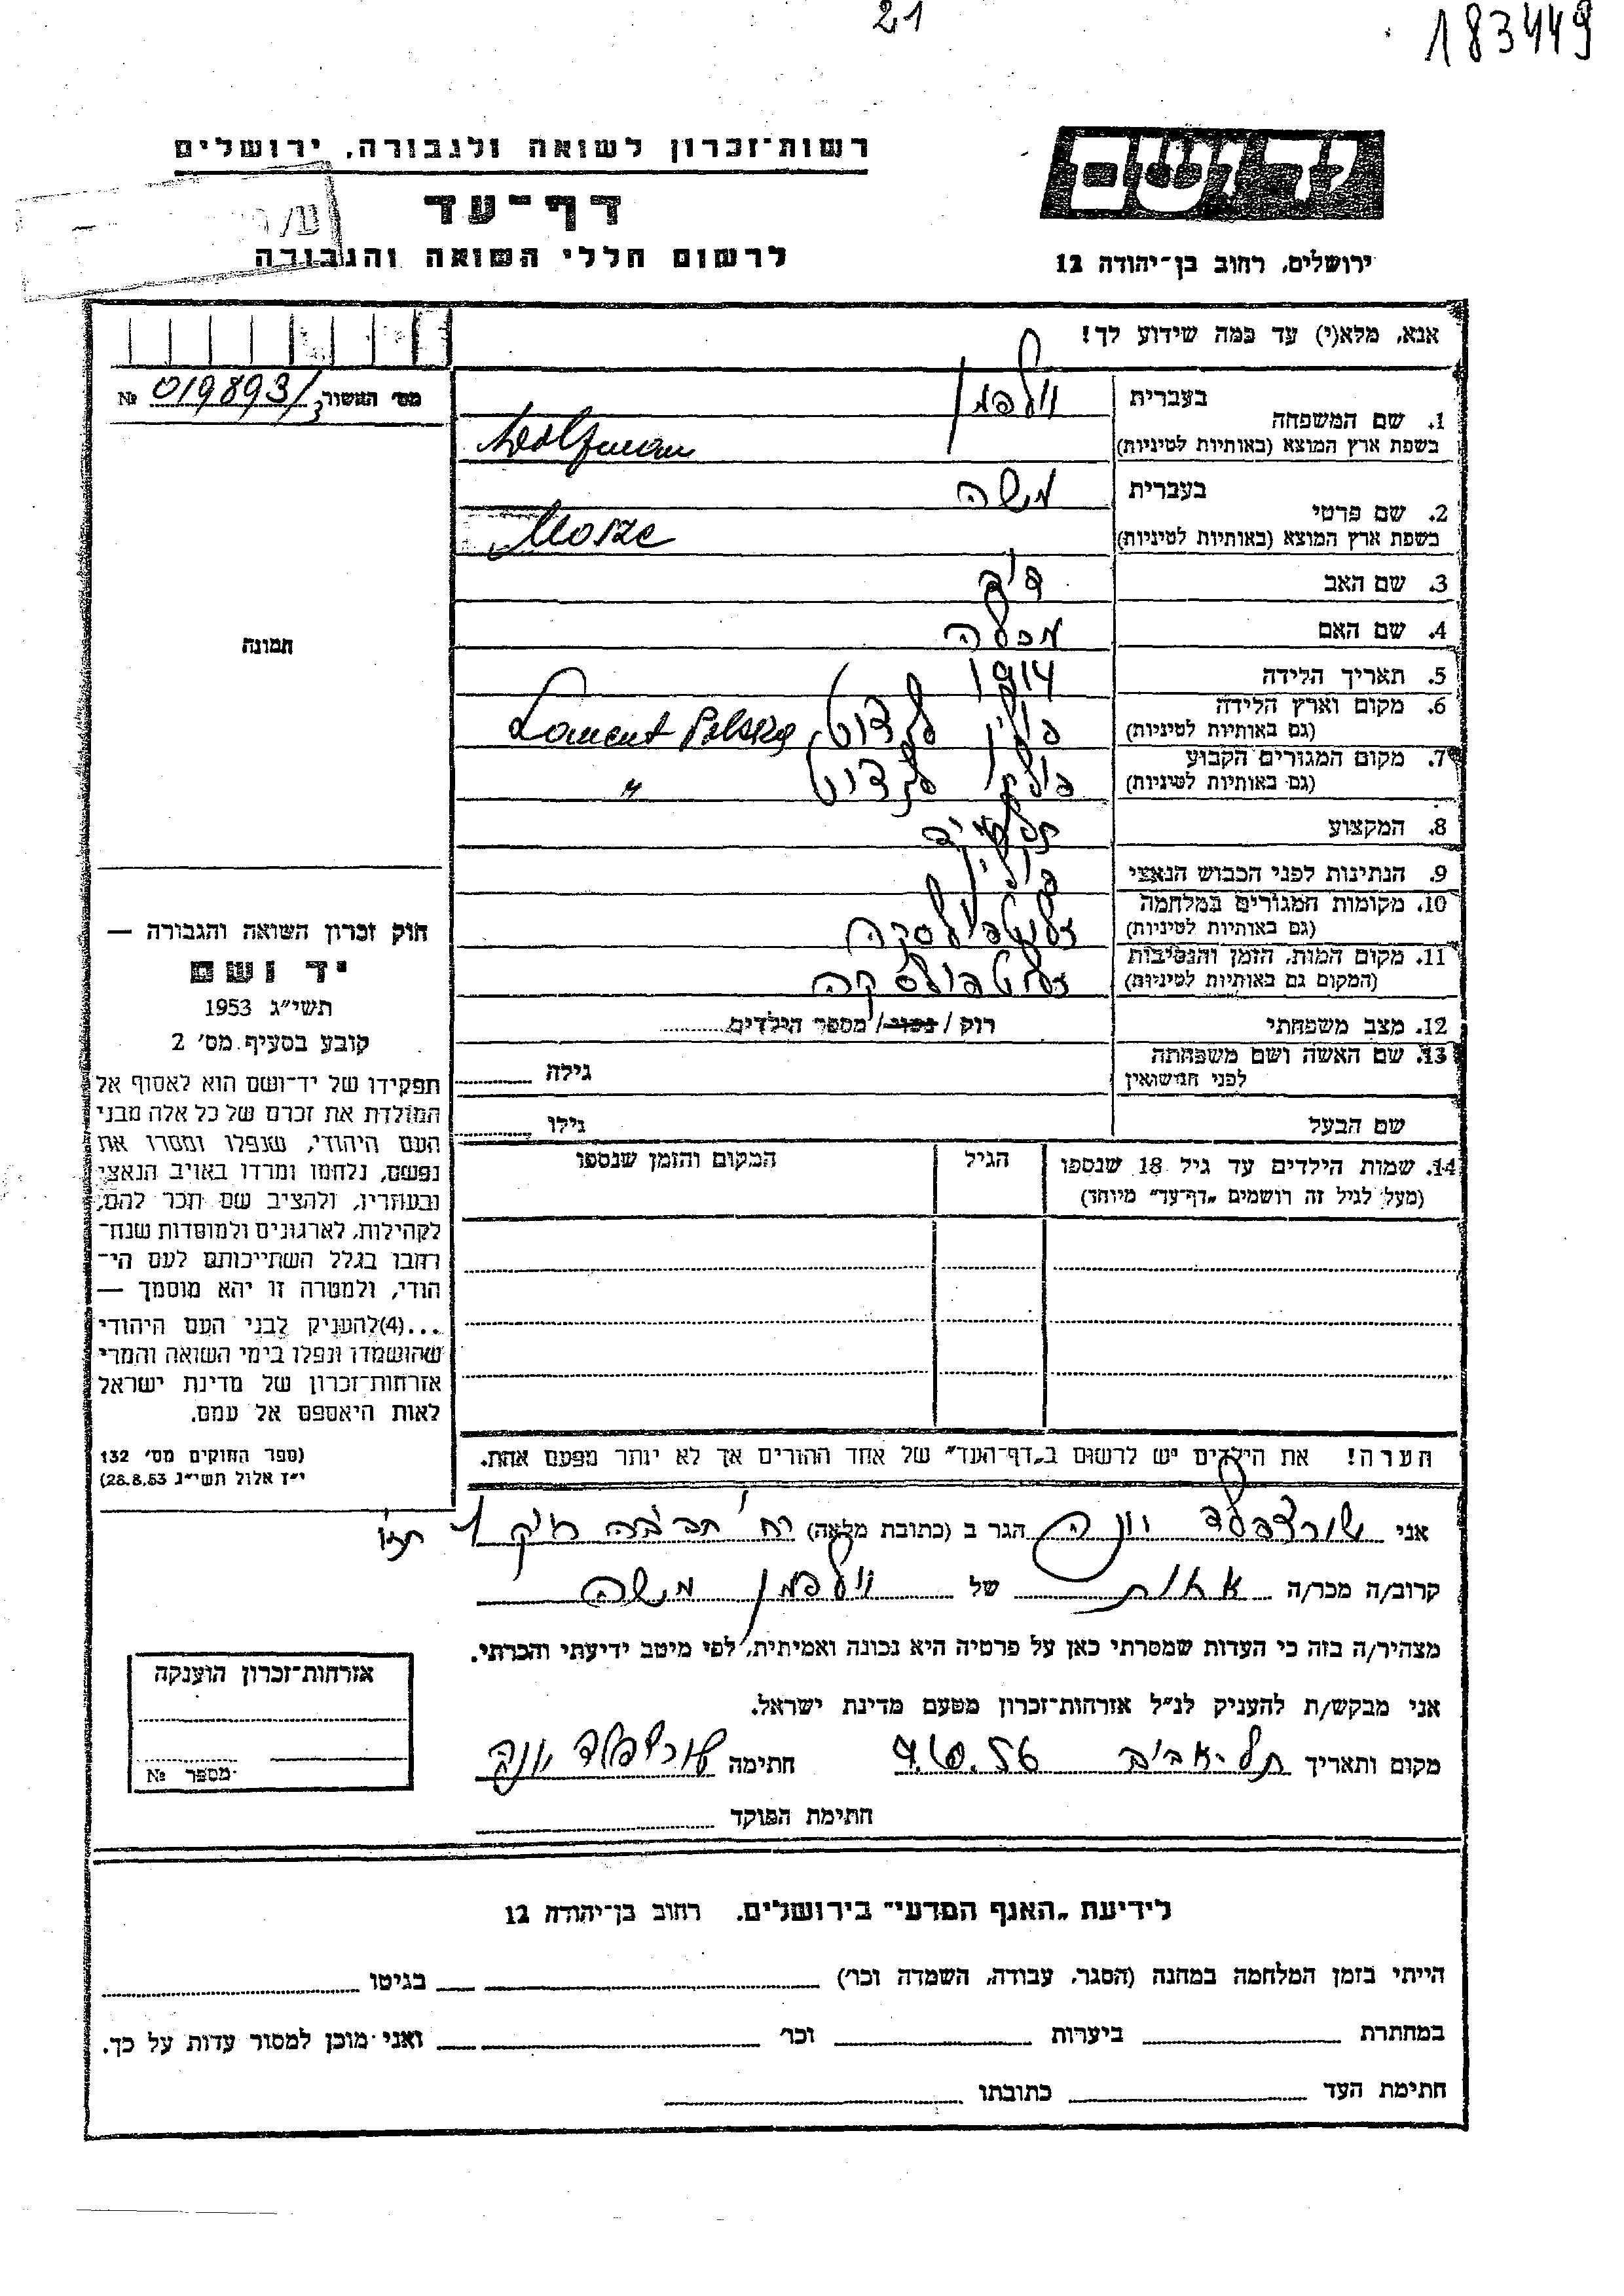 21
183449
רשות־זכרון לשואה ולגבורה, ירושלים
יד ושם
דף־עד
לרשום חללי השואה והגבורה
ירושלים, רחוב בן־יהודה 12
אנא, מלא(י) עד כמה שידוע לך!
מס׳ האשור 019893/3 №
1. שם המשפחה
בעברית וולפמן
בשפת ארץ המוצא (באותיות לטיניות) Wolfman
2. שם פרטי
בעברית משה
בשפת ארץ המוצא (באותיות לטיניות) Mosze
3. שם האב
4. שם האם מכלה
5. תאריך הלידה 1914
6. מקום וארץ הלידה פולין
(גם באותיות לטיניות) Polska
7. מקום המגורים הקבוע פולין
(גם באותיות לטיניות) "
8. המקצוע
9. הנתינות לפני הכבוש הנאצי פולין
10. מקומות המגורים במלחמה
(גם באותיות לטיניות)
11. מקום המות, הזמן והנסיבות
(המקום גם באותיות לטיניות)
12. מצב משפחתי רוק / נשוי / מספר הילדים
13. שם האשה ושם משפחתה
לפני הנישואין
גילה
שם הבעל גילו
14. שמות הילדים עד גיל 18 שנספו
(מעל לגיל זה רושמים „דף־עד" מיוחד)
הגיל
המקום והזמן שנספו
הערה! את הילדים יש לרשום ב„דף־העד" של אחד ההורים אך לא יותר מפעם אחת.
תמונה
חוק זכרון השואה והגבורה —
יד ושם
תשי״ג 1953
קובע בסעיף מס׳ 2
תפקידו של יד־ושם הוא לאסוף אל
המולדת את זכרם של כל אלה מבני
העם היהודי, שנפלו ומסרו את
נפשם, נלחמו ומרדו באויב הנאצי
ובעוזריו, ולהציב שם וזכר להם,
לקהילות, לארגונים ולמוסדות שנח־
רבו בגלל השתייכותם לעם הי־
הודי, ולמטרה זו יהא מוסמך —
...(4)להעניק לבני העם היהודי
שהושמדו ונפלו בימי השואה והמרי
אזרחות־זכרון של מדינת ישראל
לאות היאספם אל עמם.
(ספר החוקים מס׳ 132
י״ז אלול תשי״ג 28.8.53)
אני שורצפלד יונה הגר ב (כתובת מלאה) רח׳
קרוב/ה מכר/ה אחות של וולפמן משה
מצהיר/ה בזה כי העדות שמסרתי כאן על פרטיה היא נכונה ואמיתית, לפי מיטב ידיעתי והכרתי.
אני מבקש/ת להעניק לנ״ל אזרחות־זכרון מטעם מדינת ישראל.
מקום ותאריך תל־אביב חתימה שורצפלד יונה
חתימת הפוקד
אזרחות־זכרון הוענקה
מספר №
לידיעת „האגף המדעי" בירושלים, רחוב בן־יהודה 12
הייתי בזמן המלחמה במחנה (הסגר, עבודה, השמדה וכו׳) בגיטו
במחתרת ביערות וכו׳ ואני מוכן למסור עדות על כך.
חתימת העד כתובתו